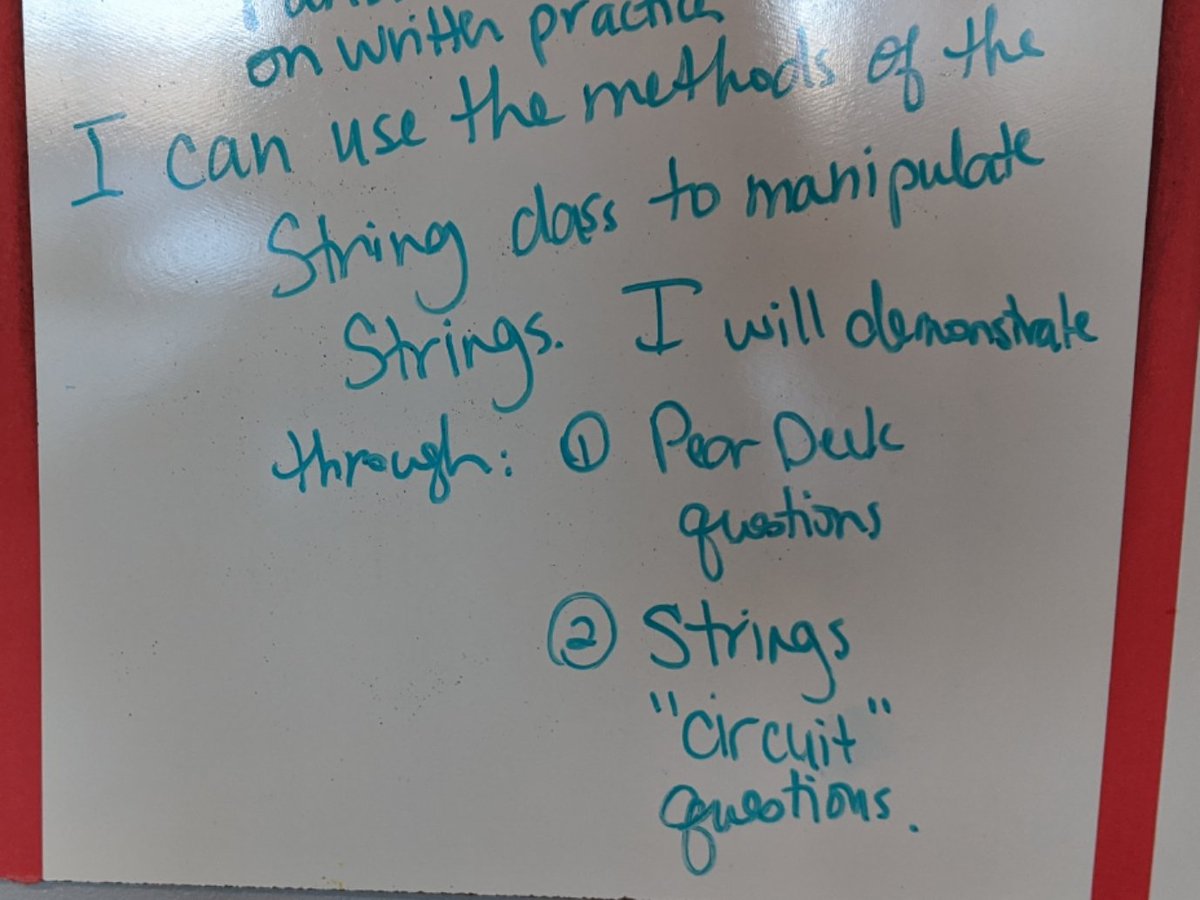 on written practice
I can use the methods of the
String class to manipulate
Strings. I will demonstrate
through: ① Pear Deck
questions
② Strings
"circuit"
questions.